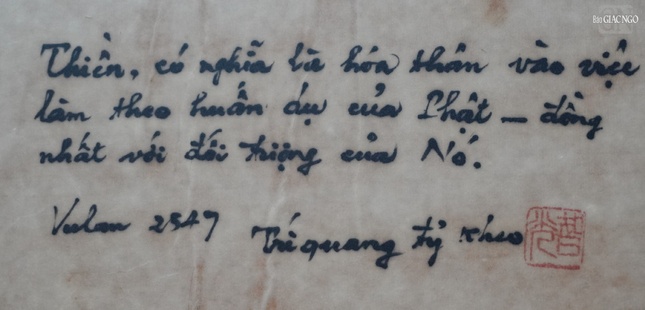 Báo GIÁC NGỘ
Thiền, có nghĩa là hóa thân vào việc
làm theo huấn dụ của Phật – đồng
nhất với đối tượng của Nó.
Vulan 2547
Trí quang tỷ kheo